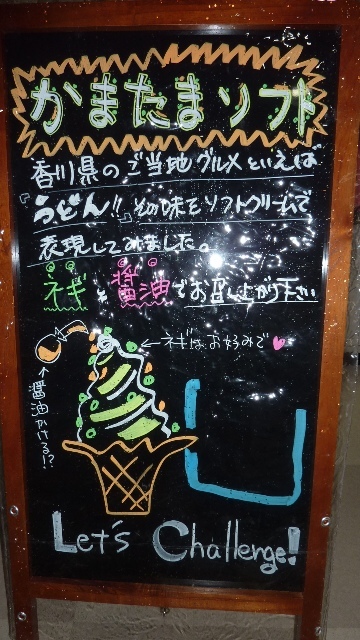 かまたまソフト
香川県のご当地グルメといえば
『うどん!!』その味をソフトクリームで
表現してみました。
ネギと醤油でお召し上がり下さい
←ネギはお好みで
↑醤油かける!?
Let's Challenge!